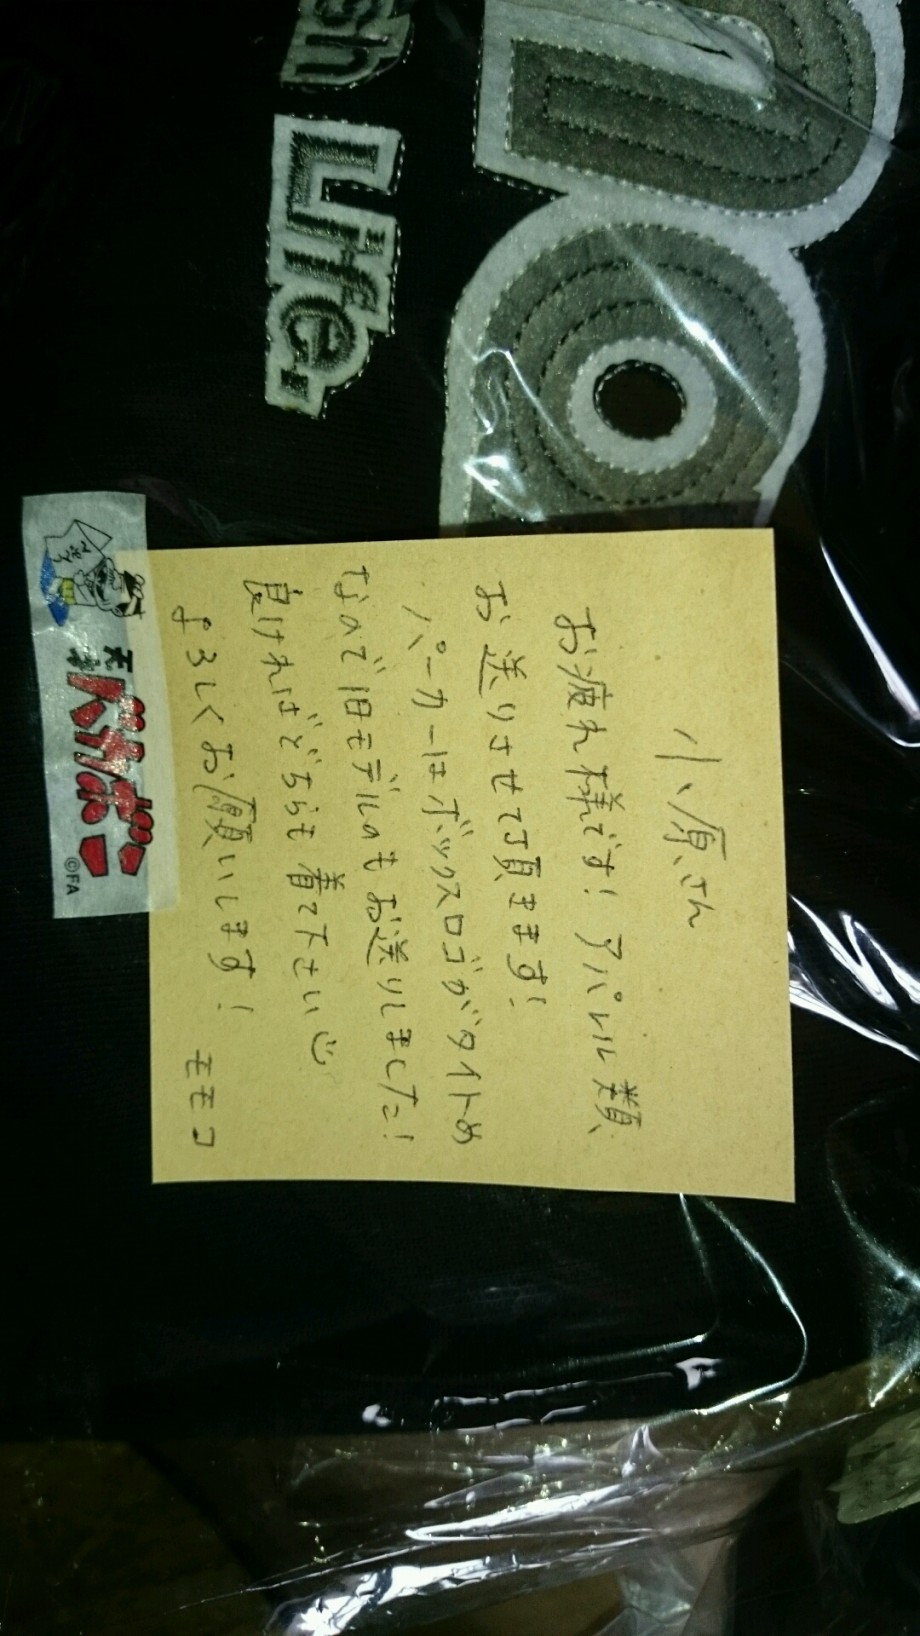 sh Life.
小原さん
お疲れ様です! アパレル類
お送りさせて頂きます!
パーカーはボックスロゴがタイトめ
なので旧モデルのもお送りしました!
良ければどちらも着て下さい
よろしくお願いします!
モモコ
天才
バカボン
©FA